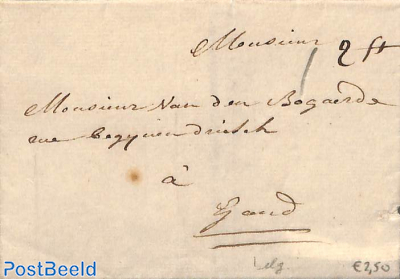 Monsieur
2 st
Monsieur Van den Bogaerde
rue begynendriesch
à
Gand
belg
€2,50
PostBeeld